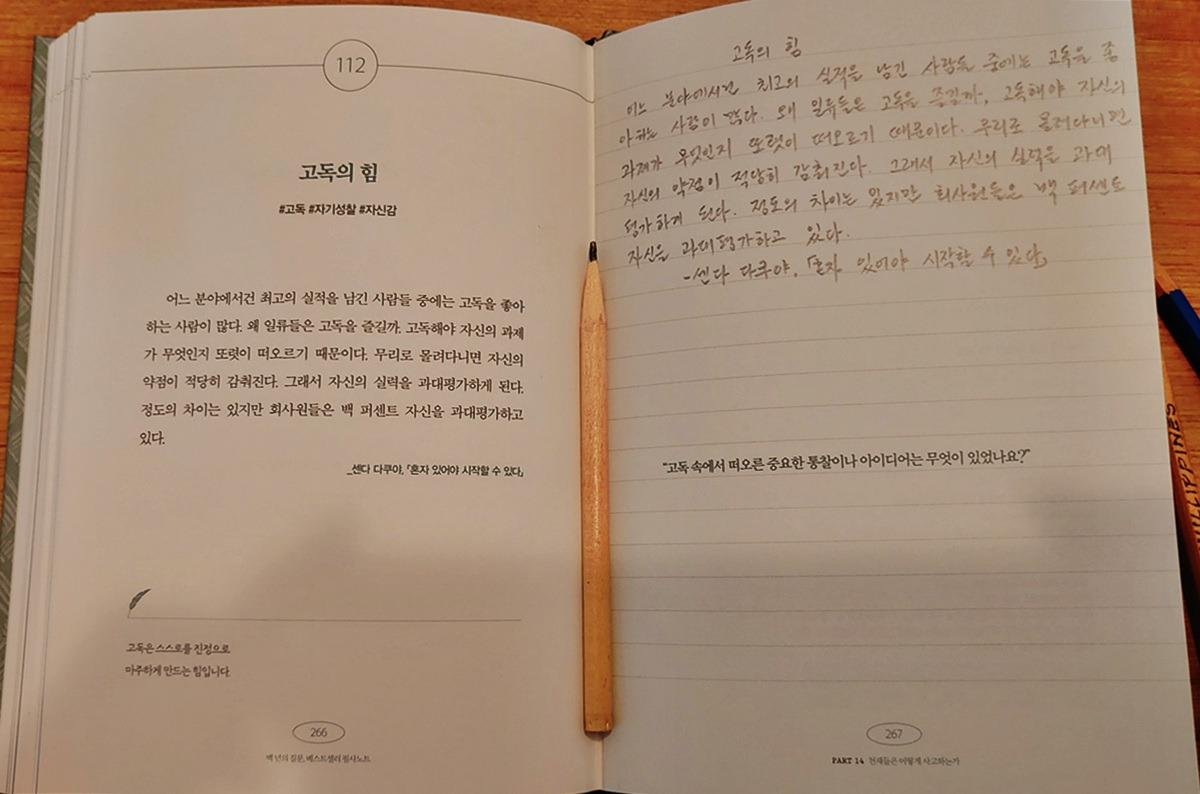 112
고독의 힘
#고독 #자기성찰 #자신감
어느 분야에서건 최고의 실적을 남긴 사람들 중에는 고독을 좋아
하는 사람이 많다. 왜 일류들은 고독을 즐길까. 고독해야 자신의 과제
가 무엇인지 또렷이 떠오르기 때문이다. 무리로 몰려다니면 자신의
약점이 적당히 감춰진다. 그래서 자신의 실력을 과대평가하게 된다.
정도의 차이는 있지만 회사원들은 백 퍼센트 자신을 과대평가하고
있다.
_센다 다쿠야, 「혼자 있어야 시작할 수 있다」
고독은 스스로를 진정으로
마주하게 만드는 힘입니다.
266
백 년의 질문, 베스트셀러 필사노트
고독의 힘
어느 분야에서건 최고의 실적을 남긴 사람들 중에는 고독을 좋
아하는 사람이 많다. 왜 일류들은 고독을 즐길까, 고독해야 자신의
과제가 무엇인지 또렷이 떠오르기 때문이다. 무리로 몰려다니면
자신의 약점이 적당히 감춰진다. 그래서 자신의 실력을 과대
평가하게 된다. 정도의 차이는 있지만 회사원들은 백 퍼센트
자신을 과대평가하고 있다.
-센다 다쿠야, 「혼자 있어야 시작할 수 있다」
"고독 속에서 떠오른 중요한 통찰이나 아이디어는 무엇이 있었나요?"
267
PART 14 천재들은 어떻게 사고하는가